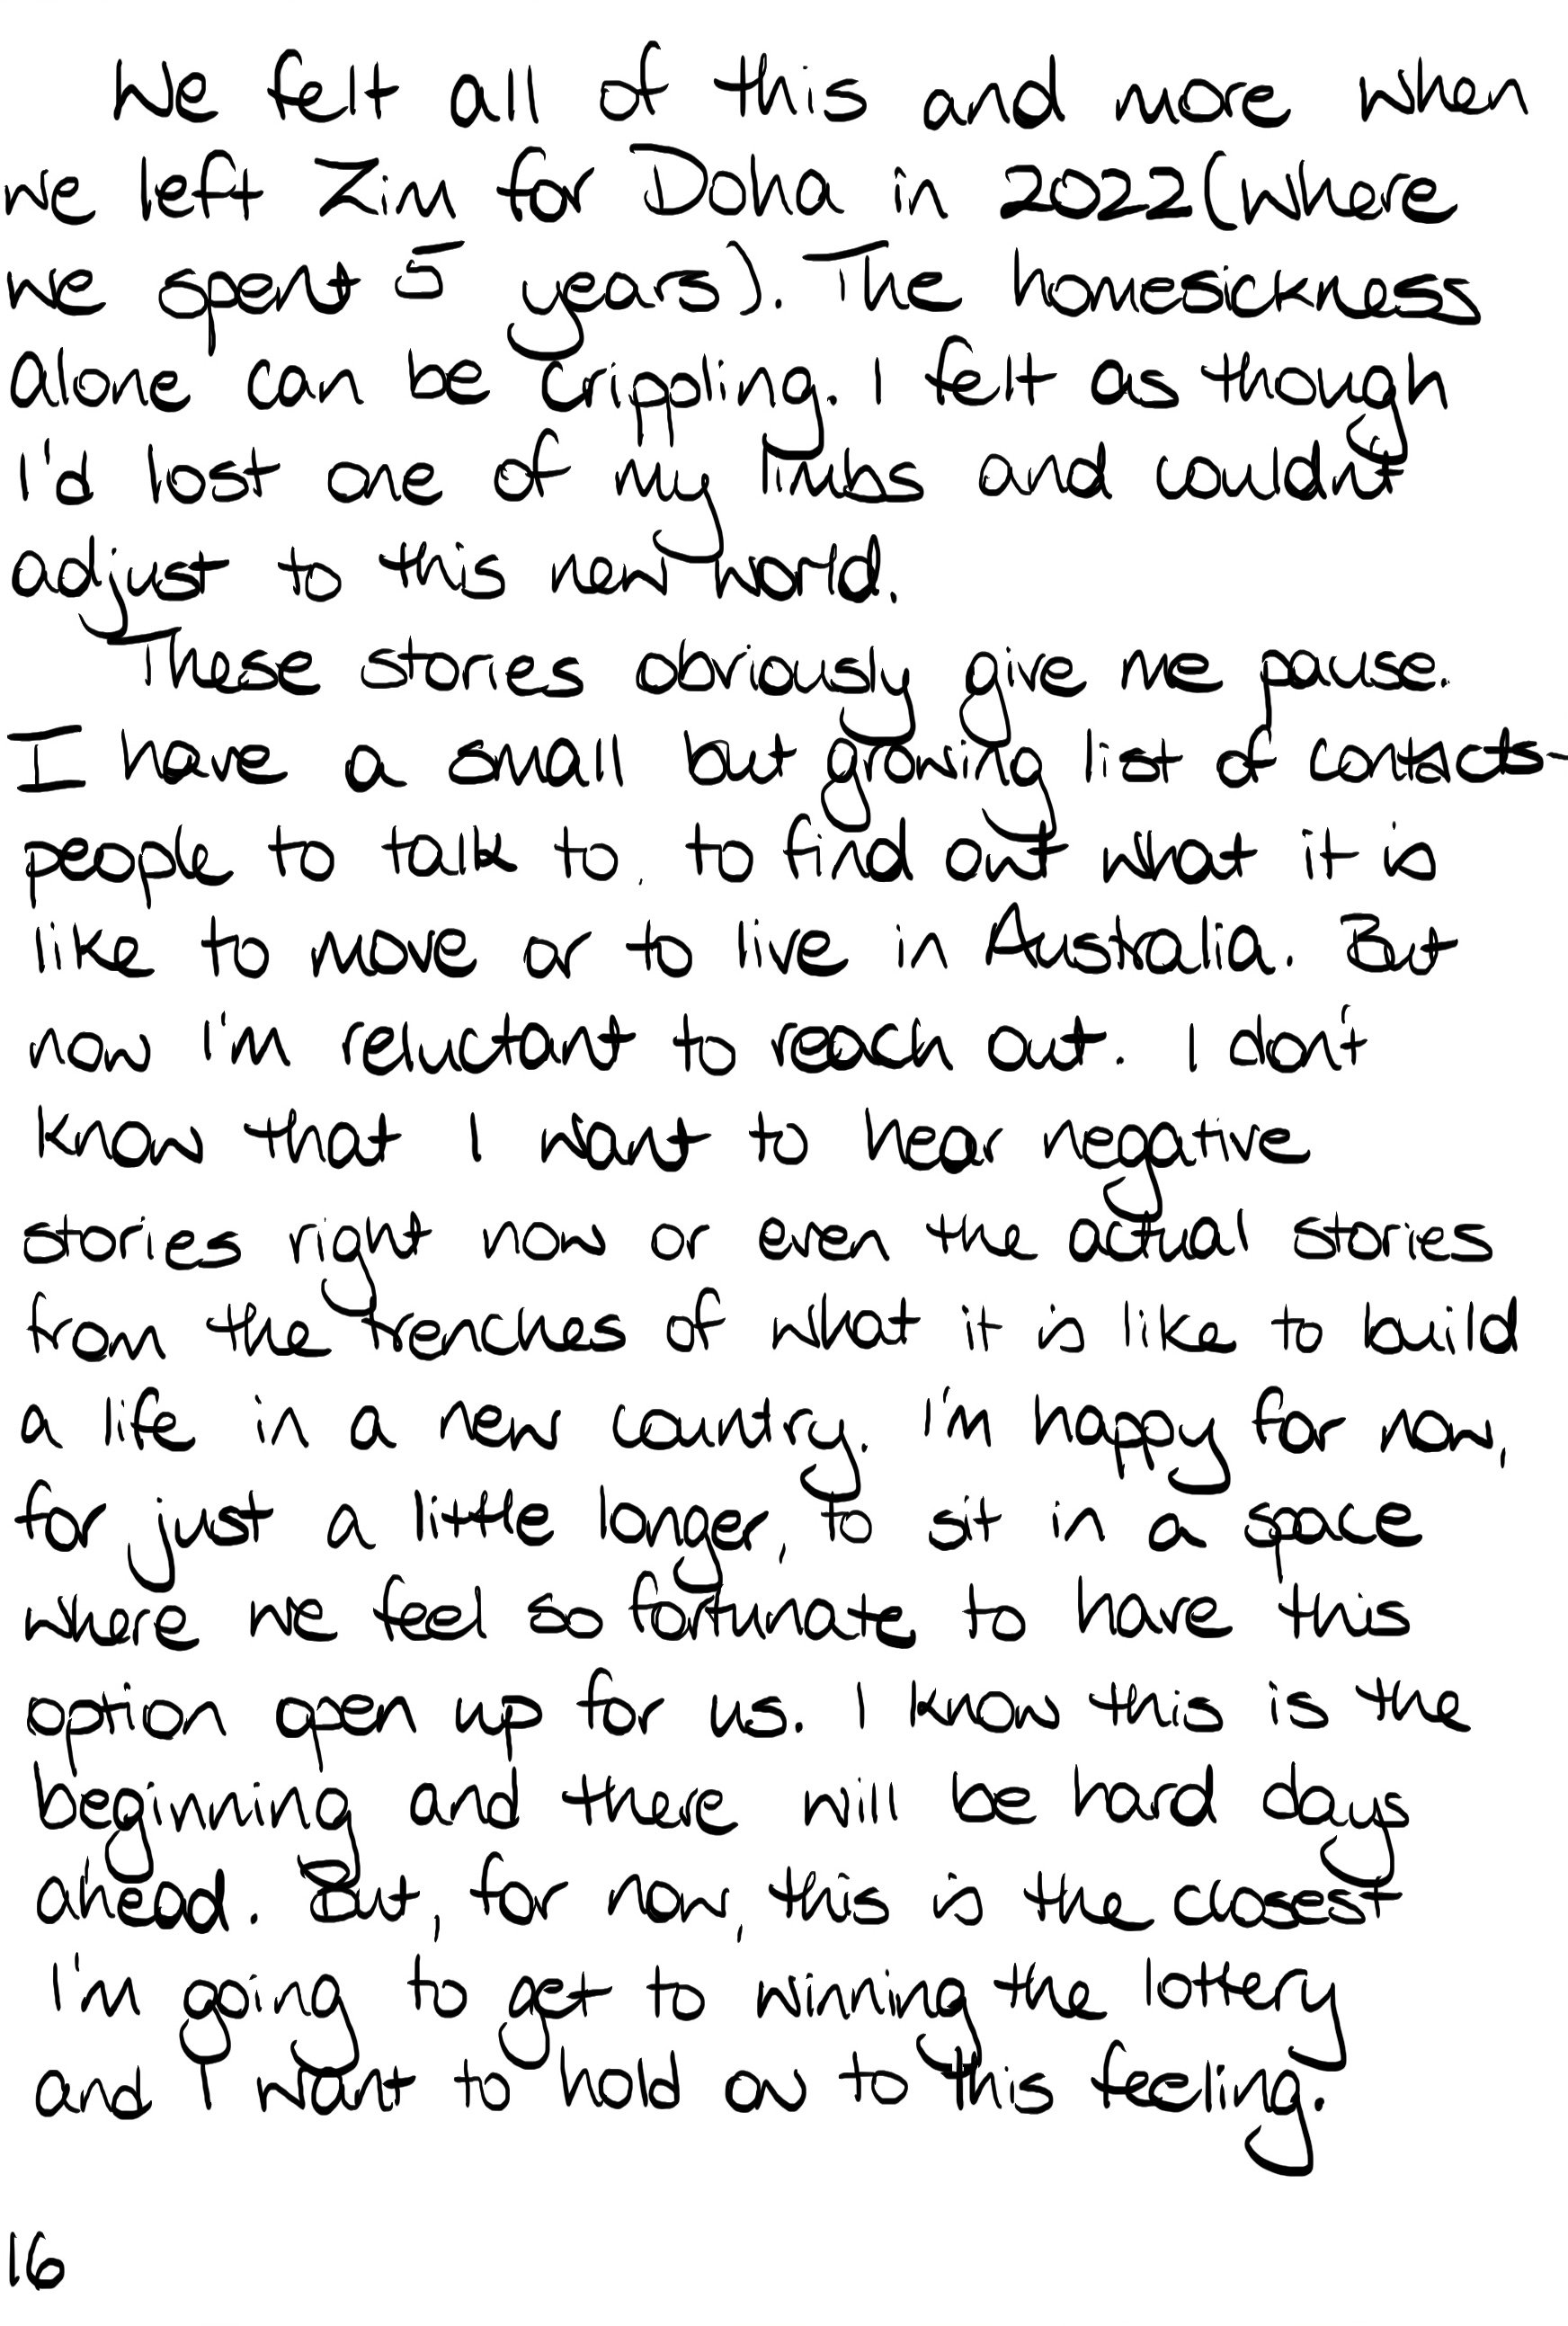 We felt all of this and more when
we left Zim for Doha in 2022 (where
we spent 5 years). The homesickness
alone can be crippling. I felt as though
I'd lost one of my limbs and couldn't
adjust to this new world.
These stories obviously give me pause.
I have a small but growing list of contacts-
people to talk to, to find out what it is
like to move or to live in Australia. But
now I'm reluctant to reach out. I don't
know that I want to hear negative
stories right now or even the actual stories
from the trenches of what it is like to build
a life in a new country. I'm happy for now,
for just a little longer, to sit in a space
where we feel so fortunate to have this
option open up for us. I know this is the
beginning and there will be hard days
ahead. But, for now, this is the closest
I'm going to get to winning the lottery
and I want to hold on to this feeling.
16